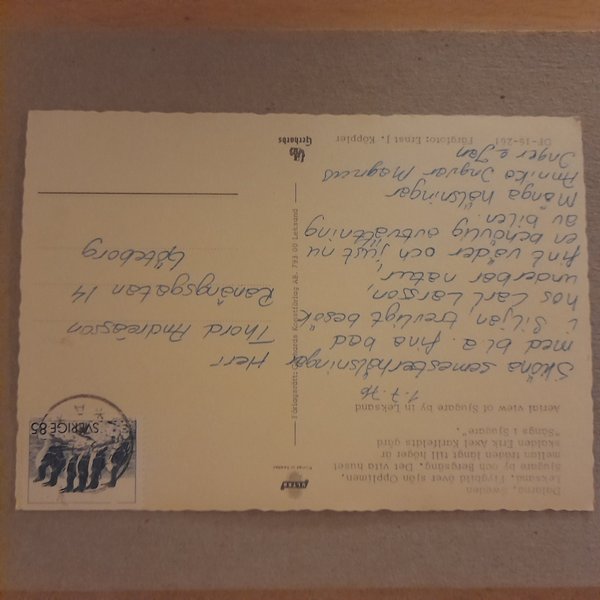 Dalarna, Sweden
Leksand. Flygbild över sjön Opplimen,
Sjugare by och Bergsäng. Det vita huset
mellan träden långt till höger är
skalden Erik Axel Karlfeldts gård
"Sångs i Sjugare".
Aerial view of Sjugare by in Leksand
1.7.76
Sköna semesterhälsningar
med bl.a. fina bad
i Siljan, trevligt besök
hos Carl Larsson,
underbar natur,
fint väder och just nu
en behövlig avtvättning
av bilen.
Många hälsningar
Annika Ingvar Magnus
Inger o Jan
DF-16-261 Färgfoto: Ernst J. Köppler
ULTRA
Förlagsrätt: Gerhards Konstförlag AB, 793 00 Leksand
Gerhards
SVERIGE 85
Herr
Thord Andreasson
Ranängsgatan 14
Göteborg